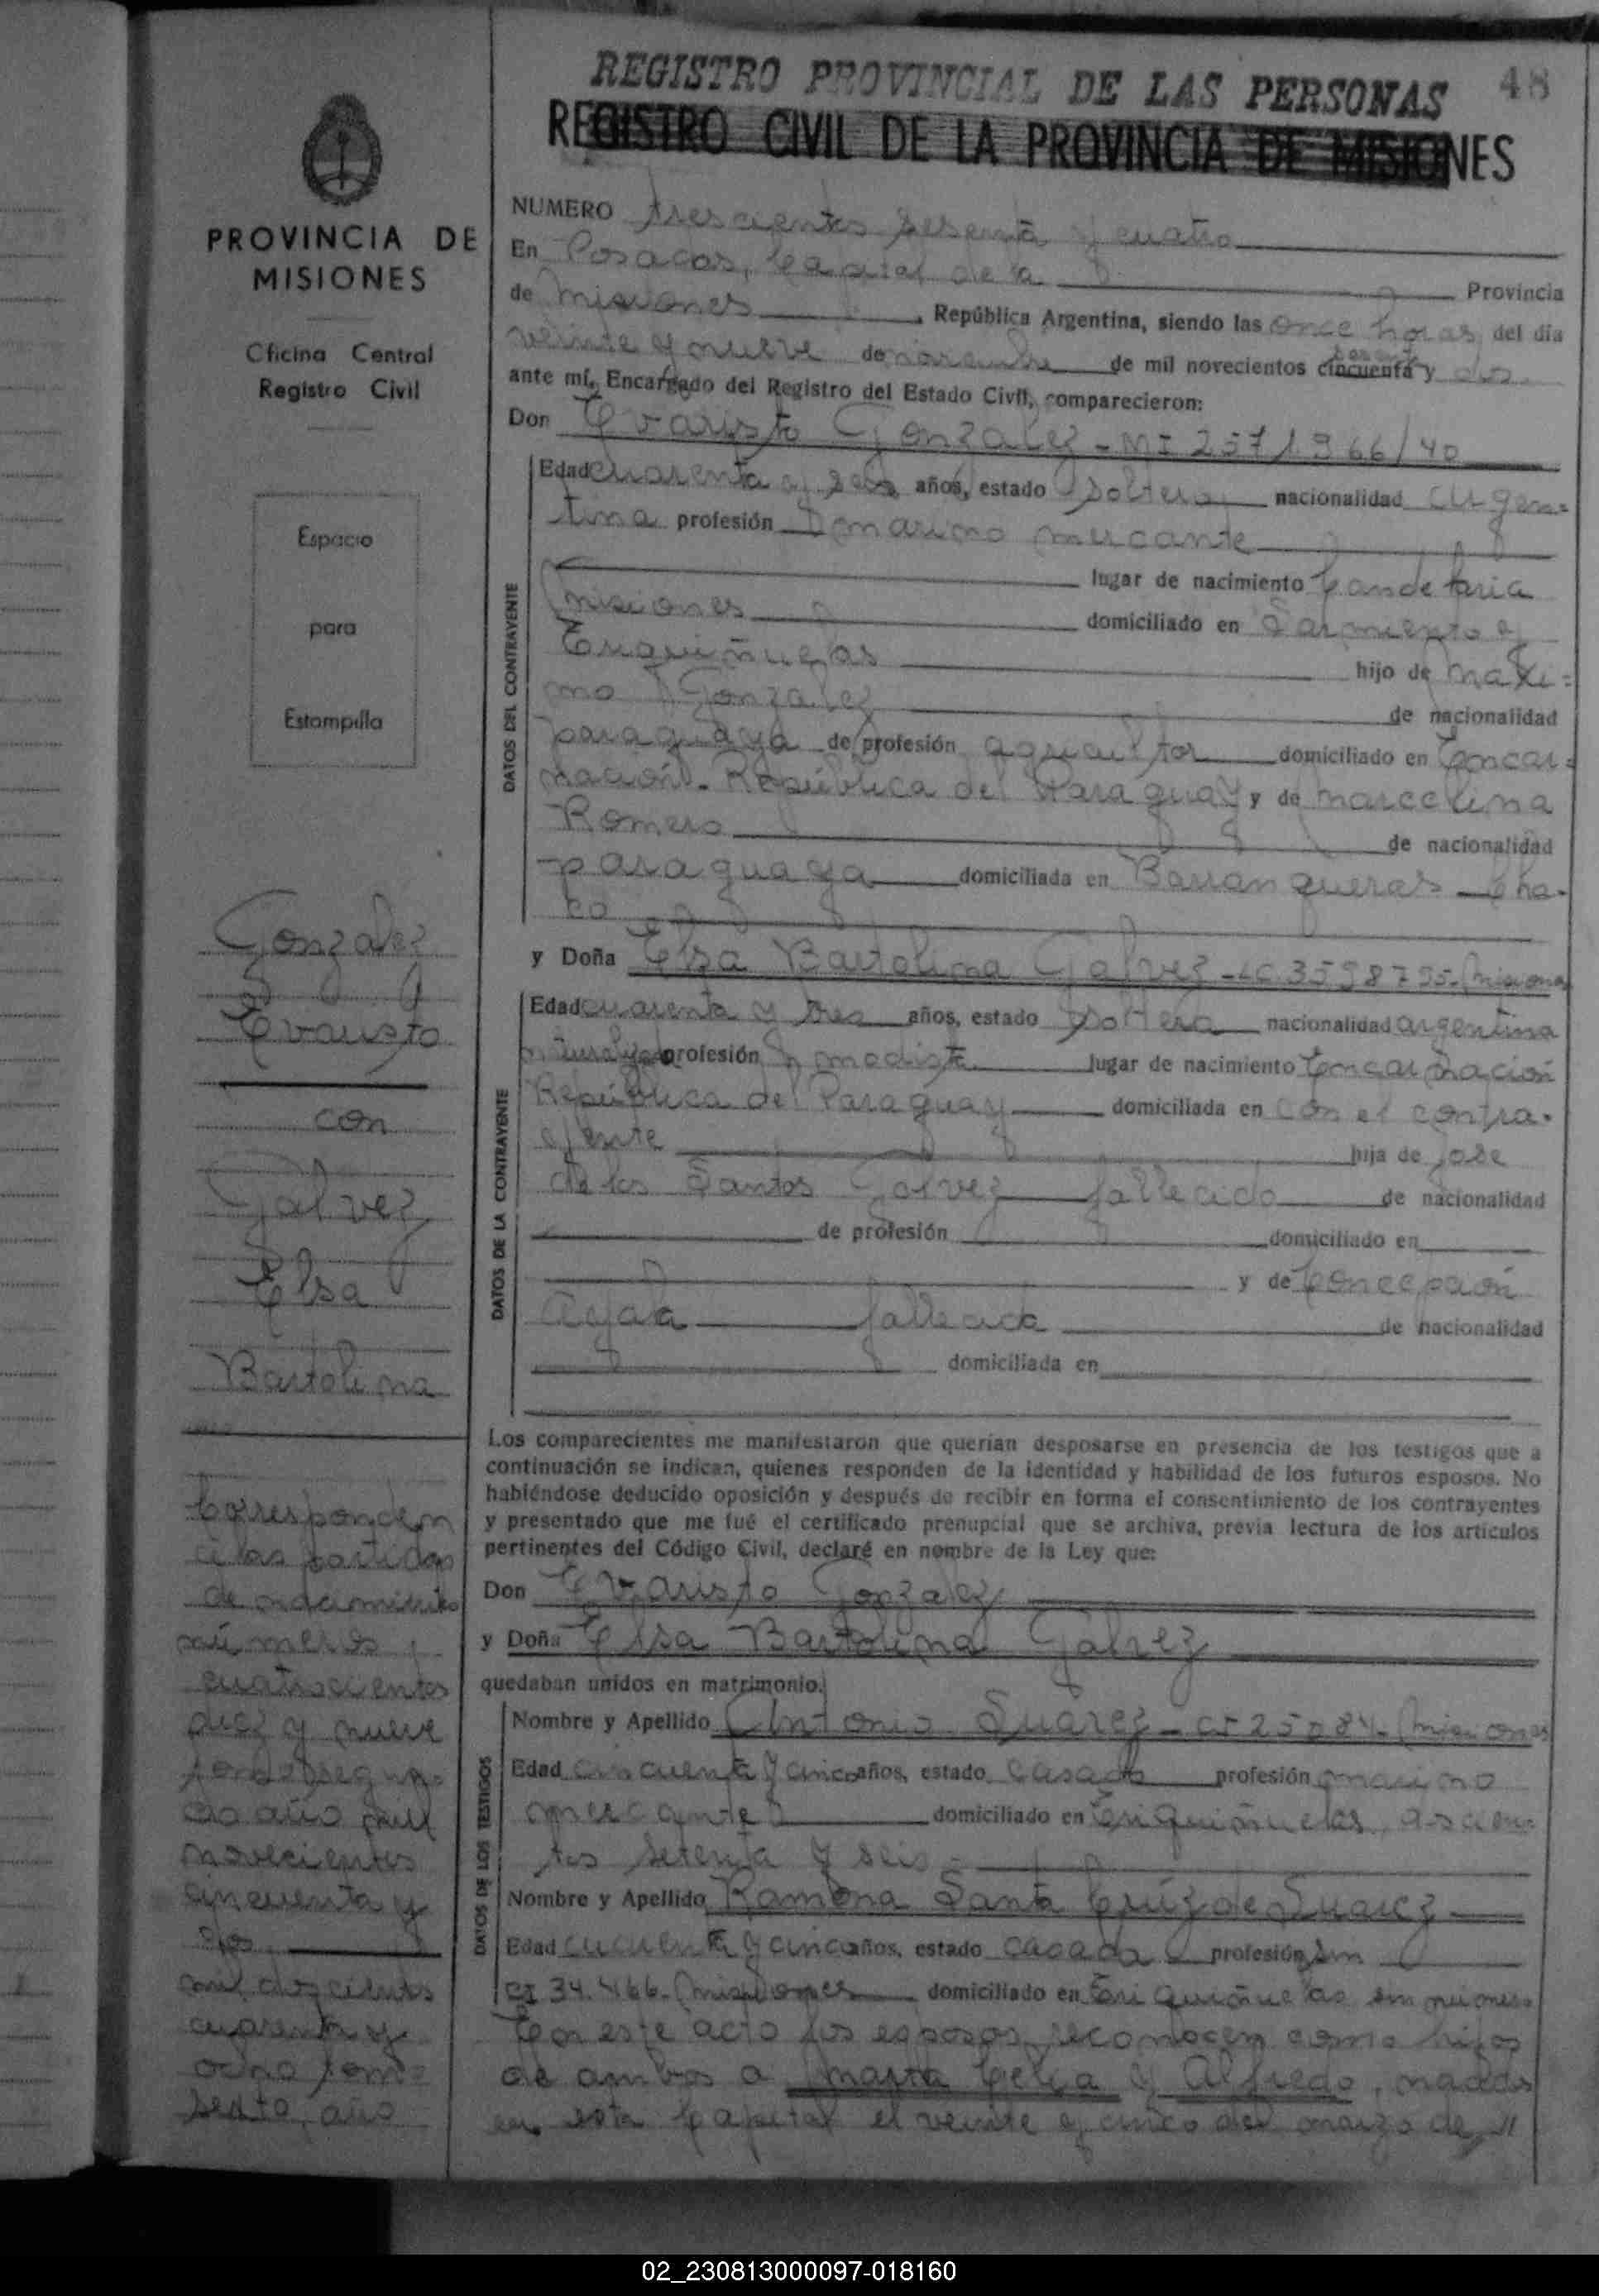 REGISTRO PROVINCIAL DE LAS PERSONAS 48
REGISTRO CIVIL DE LA PROVINCIA DE MISIONES
PROVINCIA DE
MISIONES
Oficina Central
Registro Civil
Espacio
para
Estampilla
Gonzalez
Evaristo
con
Galvez
Elsa
Bartolina
Corresponden
a las partidas
de nacimiento
números
cuatrocientos
diez y nueve
tomo segun-
do año mil
novecientos
cincuenta y
dos
mil doscientos
cuarenta y
ocho tomo
sexto, año
NUMERO trescientos sesenta y cuatro
En Posadas, Capital de la Provincia
de Misiones, República Argentina, siendo las once horas del día
veinte y nueve de noviembre de mil novecientos cincuenta sesenta y dos
ante mí, Encargado del Registro del Estado Civil, comparecieron:
Don Evaristo Gonzalez - MI 2571966/40
Edad cuarenta y seis años, estado soltero nacionalidad argen=
tina profesión marino mercante
lugar de nacimiento Candelaria
Misiones domiciliado en Sarmiento y
hijo de Maxi=
mo Gonzalez de nacionalidad
paraguaya de profesión agricultor domiciliado en Encar=
nación - República del Paraguay y de Marcelina
Romero de nacionalidad
paraguaya domiciliada en Barranqueras - Cha-
co
y Doña Elsa Bartolina Galvez - LC 3598795 - Misiones
Edad cuarenta y tres años, estado soltera nacionalidad argentina
profesión modista lugar de nacimiento Encarnación
República del Paraguay domiciliada en con el contra-
yente hija de José
de los Santos Galvez fallecido de nacionalidad
de profesión domiciliado en
y de Concepción
Ayala fallecida de nacionalidad
domiciliada en
DATOS DEL CONTRAYENTE
DATOS DE LA CONTRAYENTE
Los comparecientes me manifestaron que querían desposarse en presencia de los testigos que a
continuación se indican, quienes responden de la identidad y habilidad de los futuros esposos. No
habiéndose deducido oposición y después de recibir en forma el consentimiento de los contrayentes
y presentado que me fué el certificado prenupcial que se archiva, previa lectura de los artículos
pertinentes del Código Civil, declaré en nombre de la Ley que:
Don Evaristo Gonzalez
y Doña Elsa Bartolina Galvez
quedaban unidos en matrimonio.
DATOS DE LOS TESTIGOS
Nombre y Apellido Antonio Suarez - CI 25084 - Misiones
Edad cincuenta y cinco años, estado casado profesión marino
mercante domiciliado en
tos setenta y seis -
Nombre y Apellido Ramona Santa Cruz de Suarez
Edad cincuenta y cinco años, estado casada profesión sin
CI 34.466 - Misiones domiciliado en sin número
En este acto los esposos reconocen como hijos
de ambos a Marta Celia y Alfredo, nacidos
en esta Capital el veinte y cinco de marzo de //
02_230813000097-018160